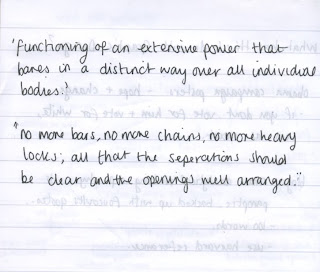 'functioning of an extensive power that
bares in a distinct way over all individual
bodies.'
"no more bars, no more chains, no more heavy
locks; all that the seperations should
be clear and the openings well arranged."